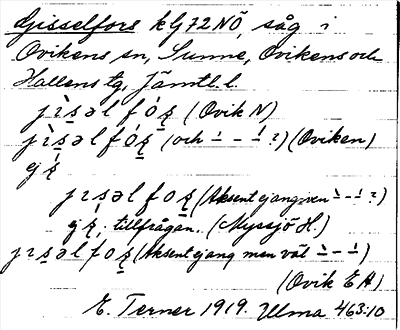 Gisselfors kG72NÖ, såg i
Ovikens sn, Sunne, Ovikens och
Hallens tg, Jämtl. l.
jɪ̀s̠əl fó́ʂ (Ovik N)
jɪ̀s̠əl fóʂ̠ (och ̀ – ́ ?) (Oviken)
ej ʂ́
jɪs̠əl foʂ̠ (Aksent ej angiven ̀ – ́ ?)
ej ʂ̠, tillfrågan. (Myssjö H.)
jɪs̠əl foʂ̠ (Aksent ej ang men väl ̀ – ́)
(Ovik E H)
E. Terner 1919. Ulma 463:10